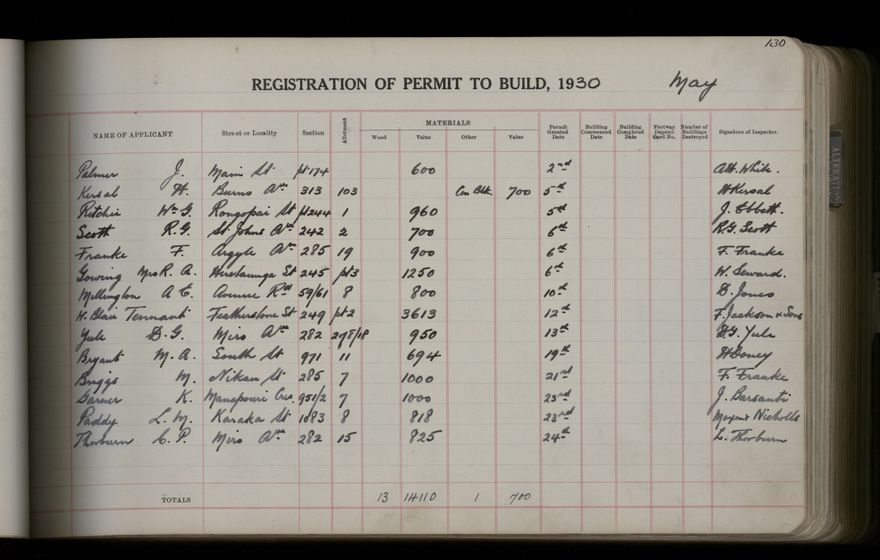 130
REGISTRATION OF PERMIT TO BUILD, 1930 May
NAME OF APPLICANT Street or Locality Section Allotment MATERIALS Wood Value Other Value Permit Granted Date Building Commenced Date Building Completed Date Footway Deposit Card No. Number of Buildings Destroyed Signature of Inspector.
Palmer J. Main St pt174 600 2nd A.H. White.
Kersal H. Burns Ave 313 103 Con Blk. 700 5th H Kersal
Ritchie Wm G. Rongopai St pt244 1 960 5th J. Ebbett.
Scott R.G. St Johns Ave 242 2 700 6th R.G. Scott
Franke F. Argyle Ave 285 19 900 6th F. Franke
Gowing Mrs R. A. Heretaunga St 245 pt3 1250 6th W. Seward.
Millington A E. Avenue Rd 59/61 8 800 10th D. Jones
H. Blair Tennant Featherstone St 249 pt2 3613 12th F. Jackson & Sons
Yule D.G. Miro Ave 282 278/18 950 13th D.G. Yule
Bryant M. A. South St 971 11 694 19th
Briggs M. Nikau St 285 7 1000 21st F. Franke
Garner K. Manapouri Cres. 951/2 7 1000 23rd J. Barsanti
Paddy L. M. Karaka St 1083 8 818 23rd Nicholls
Thorburn C. P. Miro Ave 282 15 825 24th L. Thorburn
TOTALS 13 14110 1 700